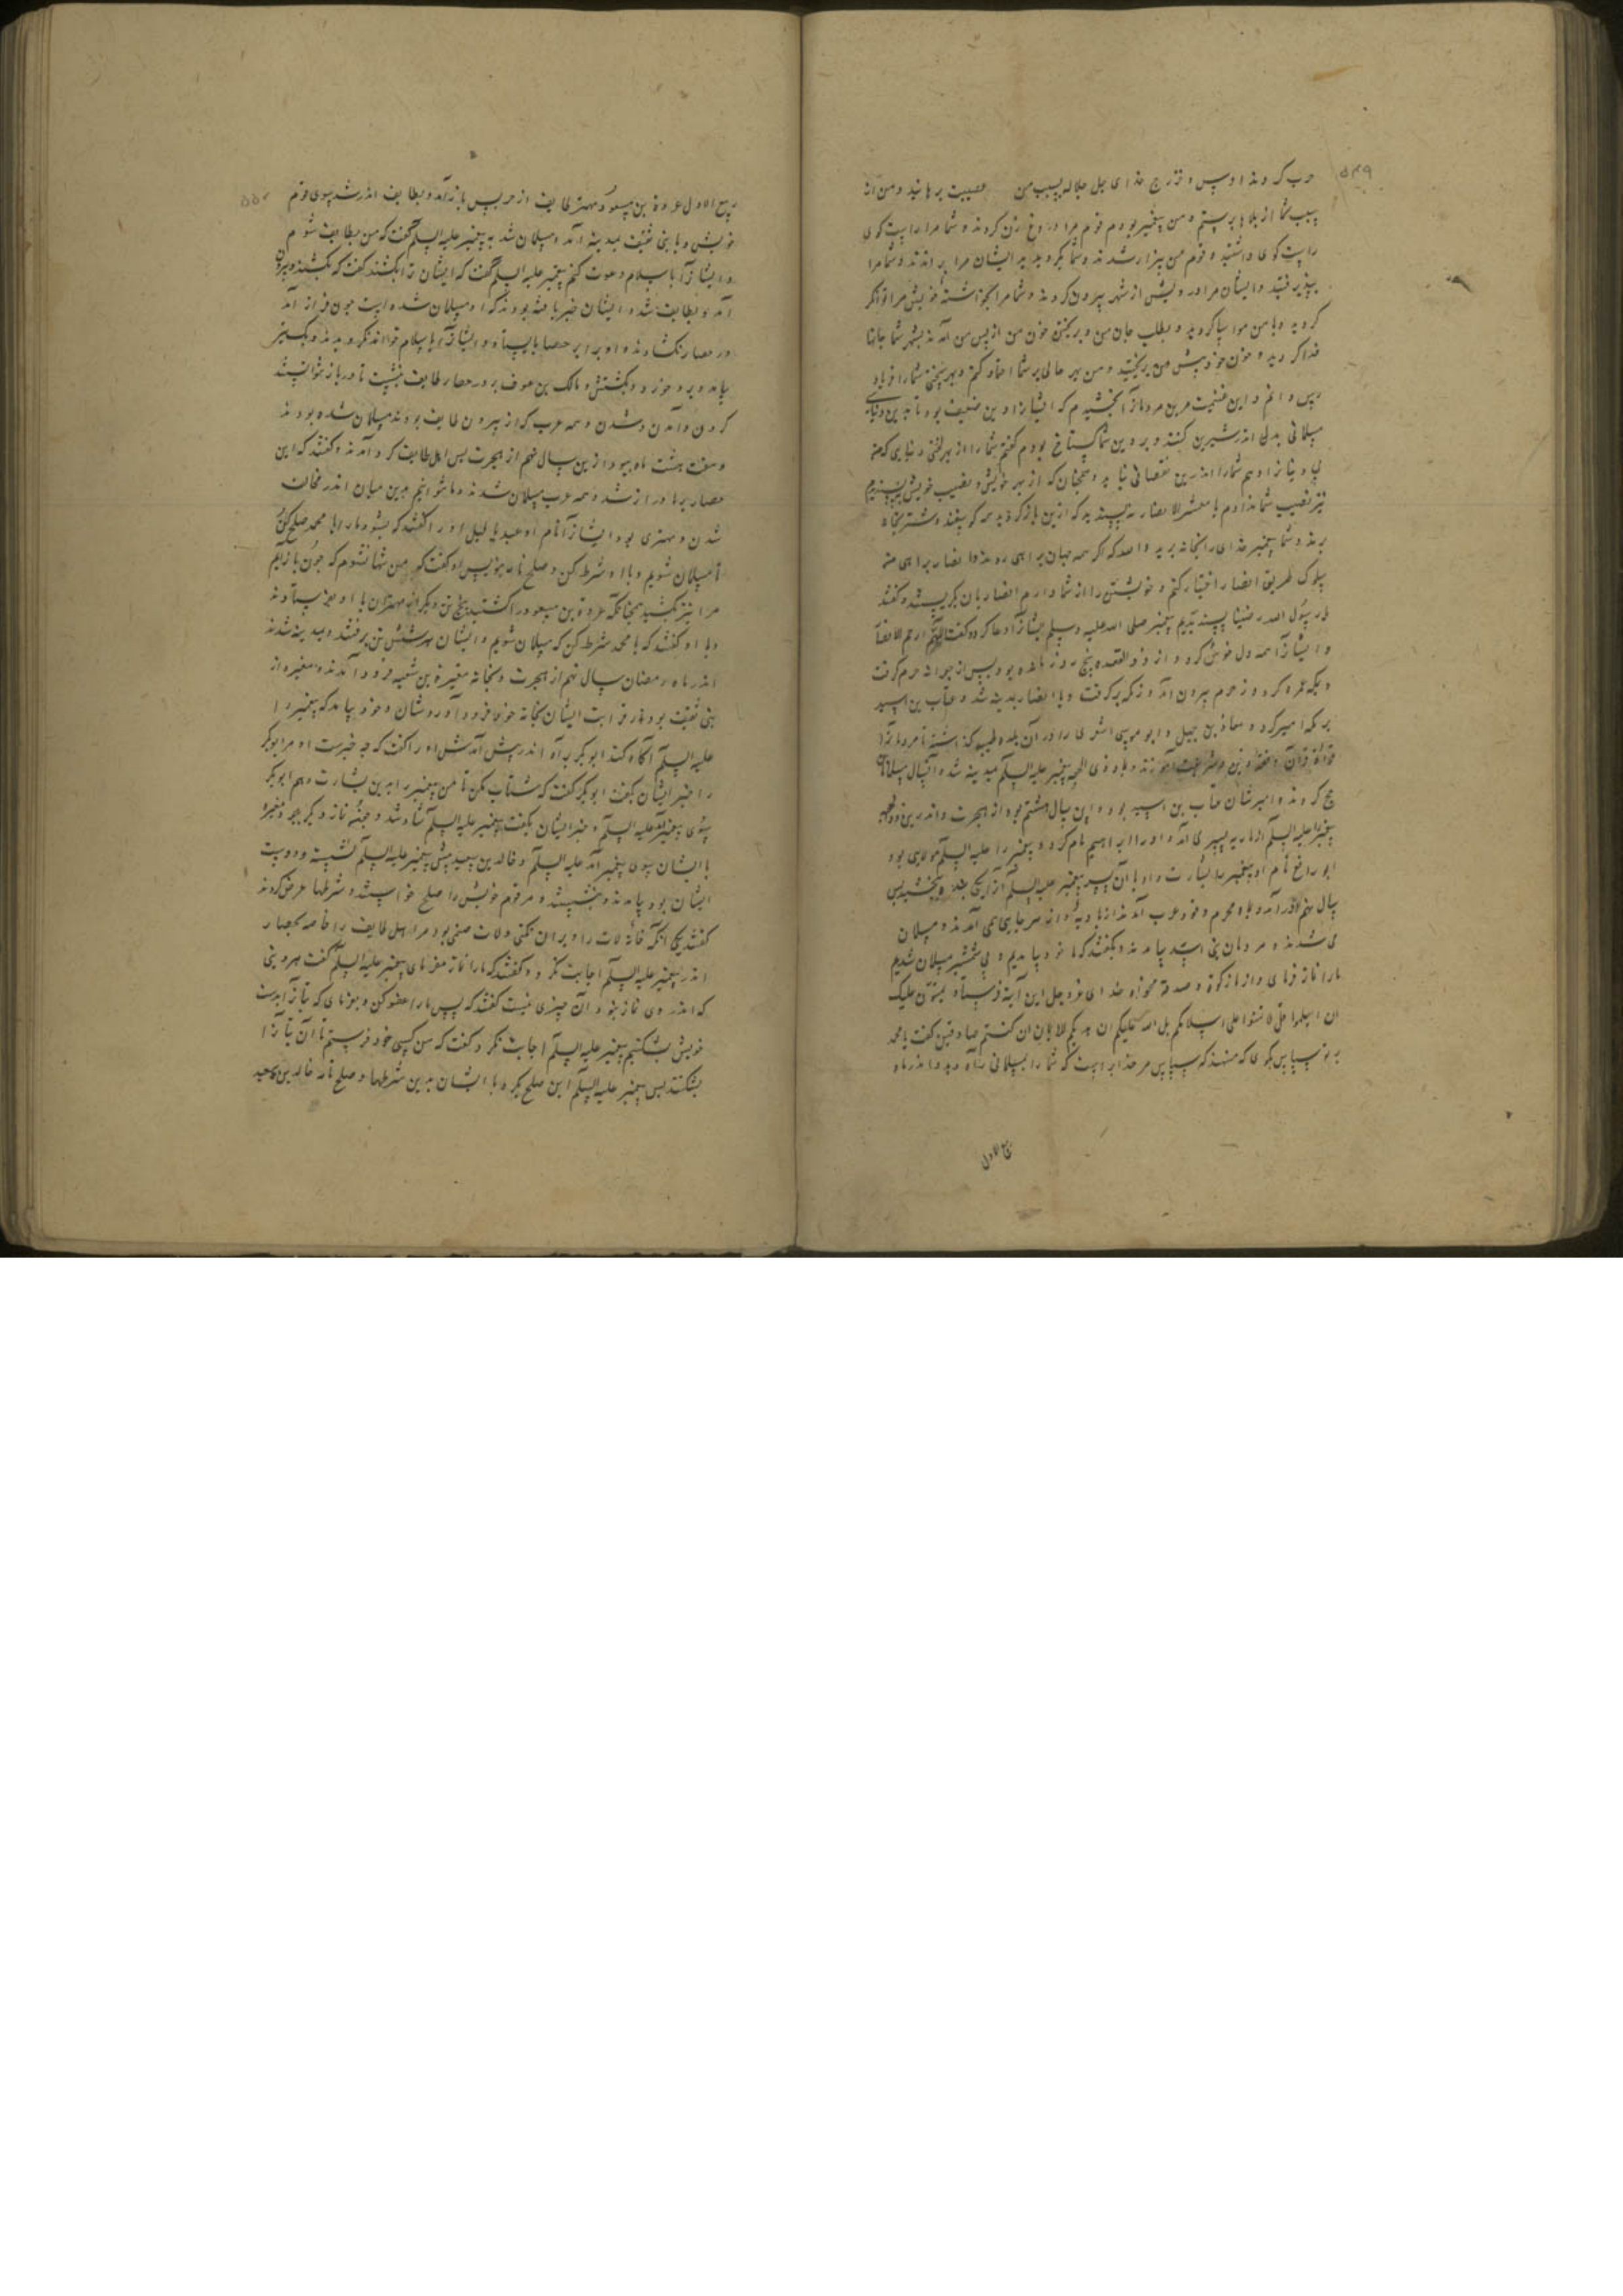 ۵۴۹
حرب کردند اوس و خزرج خدای جل جلاله بسبب من عصبیت برهانید و من از
سبب شما از بلاها برستم و من پیغمبر بودم قوم مرا دروغ زن کردند و شما مرا راست کوی
راست کوی داشتید و قوم من بیزار شدند و شما بکرویدید ایشان مرا براندند و شما مرا
بپذیرفتید و ایشان مرا درویش از شهر بیرون کردند و شما مرا بخواسته خویش مرا توانکر
کردید و با من مواسا کردید و بطلب جان من و بریختن خون من از پس من آمدند بشهر شما جانها
فدا کردید و خون خود پیش من بریختید و من بهر حالی بر شما اعتماد کنم و بهر سختی شما را فریاد
رس دانم و این غنیمت مر این مردمانرا بخشیدم که ایشانرا دین ضعیف بود تا بدین دنیا
مسلمانی بدل اندر شیرین کنند و بر دین شما کستاخ بودم کفتم شما را از بهر دنیایی که
دنیا را دهم شما را اندرین نقصانی نیاید و همچنان که از بهر خویش و نصیب خویش نپسندیدم
نیز نصیب شما ندادم یا معشر الانصار نپسندید که ازین باز کردید همه کوسفند و شتر بخانه
برند و شما پیغمبر خدای را بخانه برید والله که اکر همه جهان براهی روند و انصار براهی
سلوک طریق انصار اختیار کنم و خویشتن را از شما دارم انصاریان بکریستند و کفتند
یا رسول الله رضینا پسندیدیم پیغمبر صلی الله علیه وسلم ایشانرا دعا کرد و کفت اللهم ارحم الانصار
و ایشانرا همه دل خوش کرد و از ذوالقعده پنج روز مانده بود پس از جعرانه حرم کرفت
و بمکه عمره کرد و ز حرم بیرون آمد و ز مکه برکرفت و با انصار بمدینه شد و عتاب بن اسید
بر مکه امیر کرد و معاذ بن جبل و ابو موسی اشعری را در آن بلده طیبه کذاشته تا مردمانرا
قرآن و فقه و دین و شریعت آموزند و بماه ذی الحجه پیغمبر علیه السلم بمدینه شد و آنسال مسلمانان
حج کردند و امیرشان عتاب بن اسید بود و این سال هشتم بود از هجرت و اندرین ذوالحجه
پیغمبر علیه السلم از ماریه پسری آمد و او را ابراهیم نام کرد و پیغمبر را علیه السلم مولایی بود
ابو رافع نام او پیغمبر را بشارت داد بآن پسر پیغمبر علیه السلم او را یکی بنده بخشید پس
سال نهم اندر آمد و بماه محرم وفود عرب آمدند از بادیه و از هر جایی همی آمدند و مسلمان
می شدند و مردمان بنی اسد بیامدند و بکفتند که ما خود بیامدیم و بی شمشیر مسلمان شدیم
ما را نماز فرمای و از ما زکوة و صدقه مخواه خدای عزوجل این آیة فرستاد یمنون علیک
ان اسلموا قل لا تمنوا علی اسلامکم بل الله یمن علیکم ان هدیکم للایمان ان کنتم صادقین کفت یا محمد
بر تو سپاس بکوی که منهید که سپاس مر خدایراست که شما را بمسلمانی راه دید و اندر ماه
ربیع الاول
۵۵۰
ربیع الاول عروة بن مسعود مهتر طایف از جرش باز آمد و بطایف اندر شد سوی قوم
خویش و با بنی ثقیف بمدینه آمد و مسلمان شد به پیغمبر علیه السلم کفت که من بطایف شوم
و ایشانرا باسلام دعوت کنم پیغمبر علیه السلم کفت که ایشان ترا بکشند کفت که نکشند و بیرون
آمد و بطایف شد و ایشان خبر یافته بودند که او مسلمان شده است چون فراز آمد
در حصار نکشادند و او برابر حصار بایستاد و ایشانرا باسلام خواند نکرویدند و یک تیر
بیامد و برو خورد و بکشتش و مالک بن عوف بر در حصار طایف بنشست تا در باز نتوانستند
کردن و آمدن و شدن و همه عرب که از بیرون طایف بودند مسلمان شده بودند
و هفت هشت ماه ببود ازین سال نهم از هجرت پس اهل طایف کرد آمدند و کفتند که این
حصار بر ما دراز شد و همه عرب مسلمان شدند و ما نتوانیم بدین میان اندر مخالف
شدن و مهتری بود ایشانرا نام او عبد یالیل او را کفتند که بشو و ما را با محمد صلح کن
تا مسلمان شویم و با او شرط کن و صلح نامه بنویس او کفت که من تنها نشوم که چون باز آیم
مرا نیز بکشید همچنانکه عروة بن مسعود را کشتند پنج تن دیکر از مهتران با او بفرستادند
و با او کفتند که با محمد شرط کن که مسلمان شویم و ایشان هر شش تن برفتند و بمدینه شدند
اندر ماه رمضان سال نهم از هجرت و بخانه مغیرة بن شعبه فرود آمدند و مغیره از
بنی ثقیف بود و از قرابت ایشان بخانه خود فرود آوردشان و خود بیامد که پیغمبر را
علیه السلم آکاه کند ابوبکر براه اندر پیش آمدش او را کفت که چه خبرست او مر ابوبکر
را خبر ایشان بکفت ابوبکر کفت که شتاب مکن تا من پیغمبر را بدین بشارت دهم ابوبکر
سوی پیغمبر آمد علیه السلم و خبر ایشان بکفت پیغمبر علیه السلم شاد شد و چون نماز دیکر بود مغیره
با ایشان سوی پیغمبر آمد علیه السلم و خالد بن سعید پیش پیغمبر علیه السلم نشسته و دوست
ایشان بود بیامدند و بنشستند و مر قوم خویش را صلح خواستند و شرطها عرض کردند
کفتند یکی آنکه خانه لات را ویران نکنی و لات صنمی بود مر اهل طایف را خاصه بحصار
اندر پیغمبر علیه السلم اجابت نکرد و کفتند که ما را نماز مفرمای پیغمبر علیه السلم کفت هر دینی
که اندر وی نماز نبود آن چیزی نیست کفتند که پس ما را عفو کن و مفرمای که بتانرا بدست
خویش بشکنیم پیغمبر علیه السلم اجابت نکرد و کفت که من کسی خود فرستم تا آن بتانرا
بشکنند پس پیغمبر علیه السلم این صلح بکرد با ایشان بدین شرطها و صلح نامه خالد بن سعید